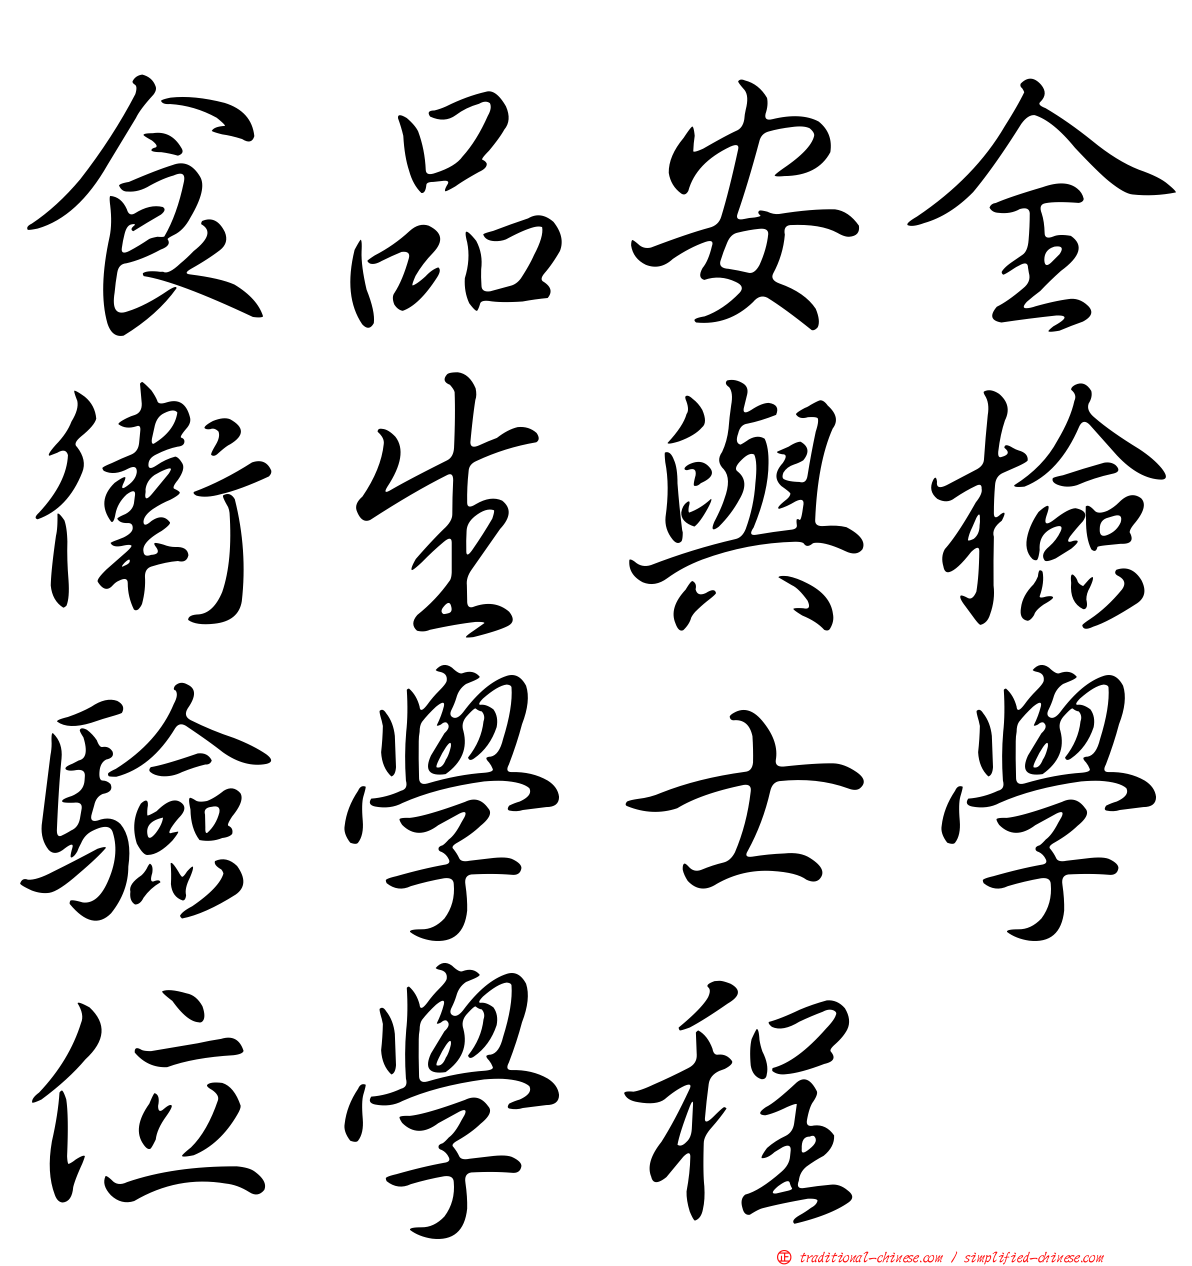 食品安全
衛生與檢
驗學士學
位學程
正 traditional-chinese.com / simplified-chinese.com